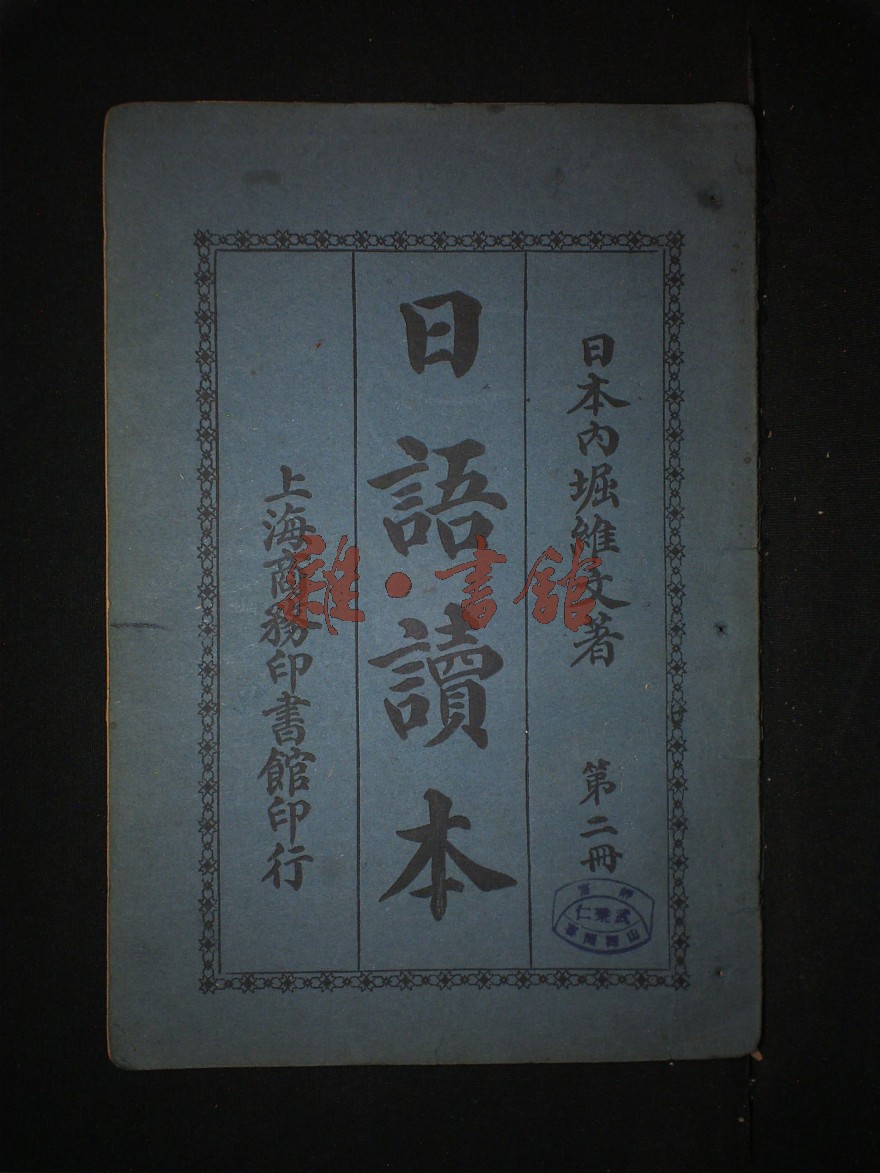 日本內堀維文著
第二冊
日語讀本
上海商務印書館印行
雜·書館
武秉仁